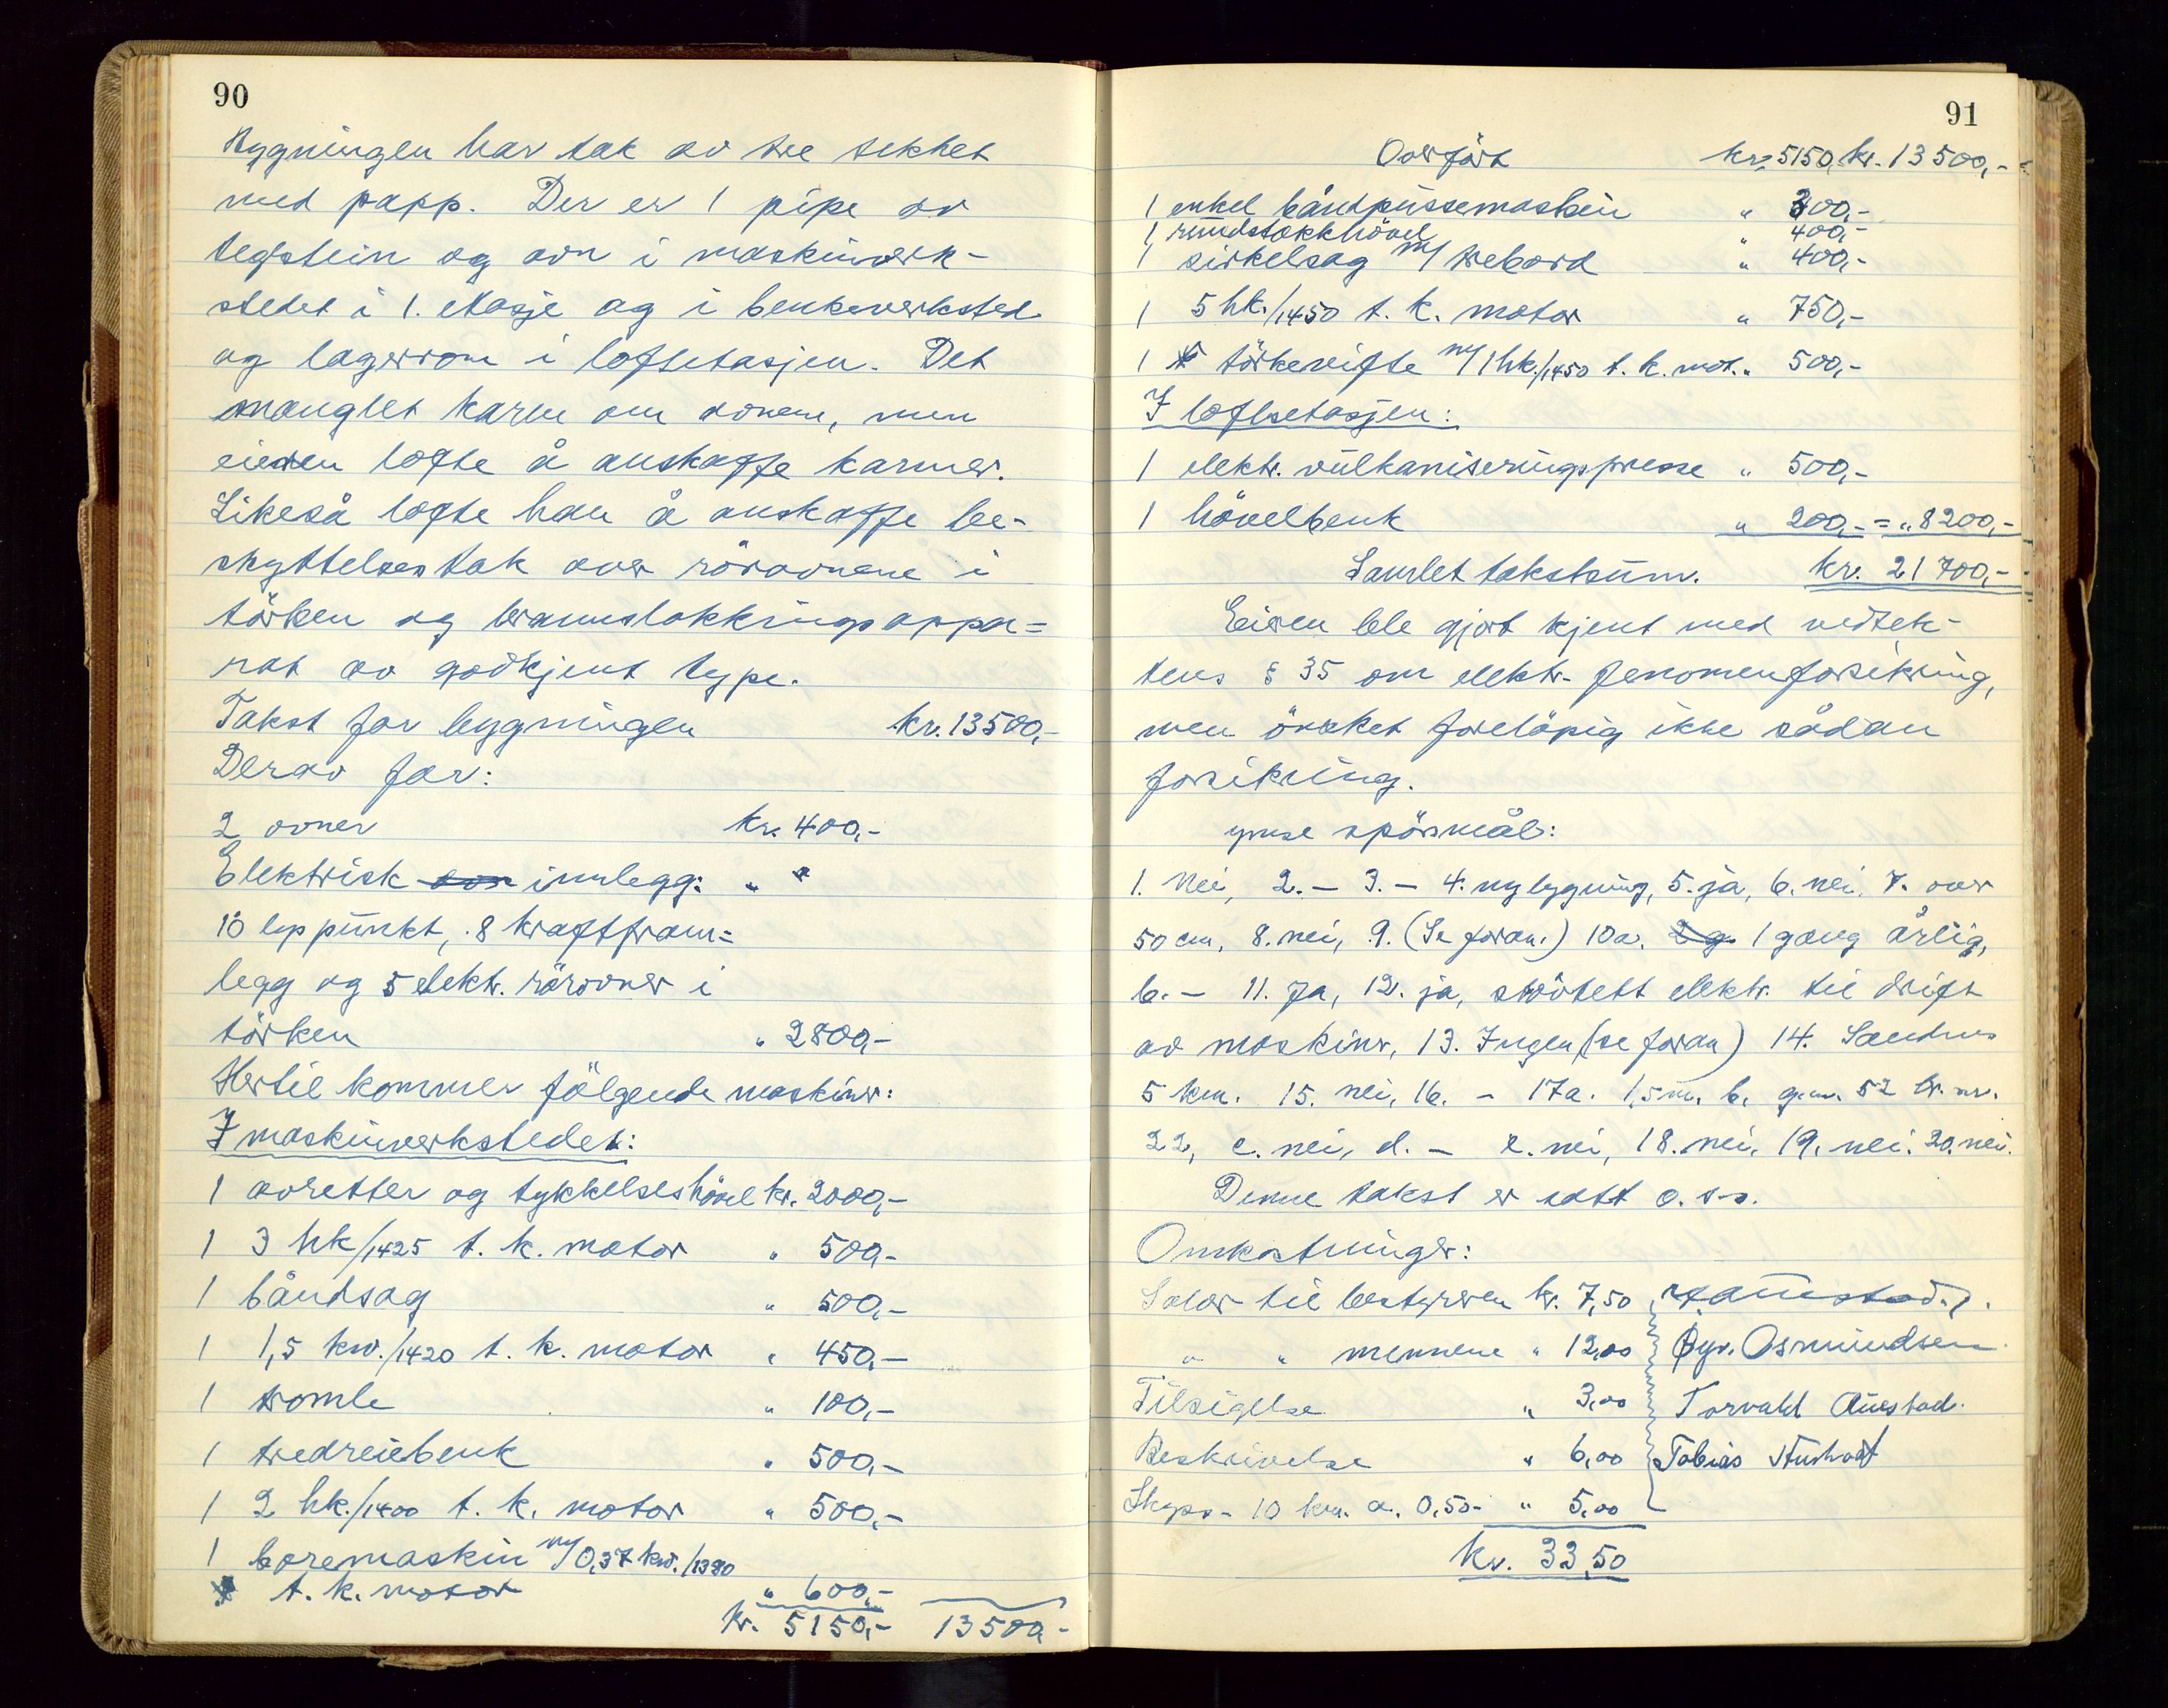 90
Bygningen har tak av tre tekket
med papp. Der er 1 pipe av
teglstein og ovn i maskinverk-
stedet i 1. etasje og i benkeverksted
og lagerrom i loftsetasjen. Det
manglet karm om ovnene, men
eieren lofte å anskaffe karmer.
Likeså lofte han å anskaffe be-
skyttelsestak over rörovnene i
törken og brannslokkingsappa=
rat av godkjent type.
Takst for bygningen kr. 13500,-
Derav for:
2 ovner kr. 400,-
Elektrisk innlegg: " "
10 lyspunkt, 8 kraftfram=
legg og 5 elektr. rörovner i
törken " 2800,-
Hertil kommer fölgende maskiner:
I maskinverkstedet:
1 avretter og tykkelseshövel kr. 2000,-
1 3 hk/1425 t. k. motor " 500,-
1 båndsag " 500,-
1 1,5 kw./1420 t. k. motor " 450,-
1 tromle " 100,-
1 tredreiebenk " 500,-
1 2 hk./1400 t. k. motor " 500,-
1 boremaskin m/0,37 kw./1380
t. k. motor " 600,-
kr. 5150,- 13500,-
91
Overfört kr. 5150,- kr. 13500,-
1 enkel båndpussemaskin " 300,-
1 rundstokkhövel " 400,-
1 sirkelsag m/ trebord " 400,-
1 5 hk./1450 t. k. motor " 750,-
1 törkevifte m/1 hk./1450 t. k. mot. " 500,-
I loftsetasjen:
1 elektr. vulkaniseringspresse " 500,-
1 hövelbenk " 200,- = " 8200,-
Samlet takstsum. kr. 21700,-
Eieren ble gjort kjent med vedtek-
tens § 35 om elektr. fenomenforsikring,
men önsket forelöpig ikke sådan
forsikring.
ymse spörsmål:
1. Nei, 2. – 3. – 4. nybygning, 5. ja, 6. nei, 7. over
50 cm, 8. nei, 9. (Se foran.) 10a. 1 gang årlig,
b. – 11. Ja, 12. ja, stövtett elektr. til drift
av maskiner, 13. Ingen (se foran) 14. Sandnes
5 km. 15. nei, 16. – 17a. 1,5 m. b. g.nr. 52 br. nr.
22, c. nei, d. – e. nei, 18. nei, 19. nei. 20. nei.
Denne takst er satt o. s. v.
Omkostninger:
Salær til bestyreren kr. 7,50
" " mennene " 12,00 Öyv. Osmundsen
Tilsigelse " 3,00 Torvald Auestad.
Beskrivelse " 6,00 Tobias
Skyss - 10 km. a. 0,50- " 5,00
kr. 33,50